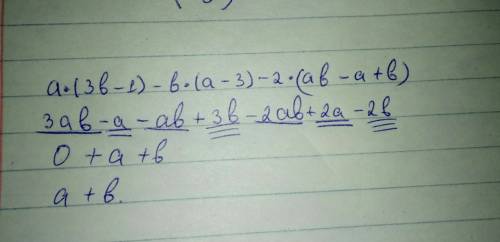 a·(3b-1)-b·(a-3)-2·(ab-a+b)
3ab-a-ab+3b-2ab+2a-2b
0+a+b
a+b.